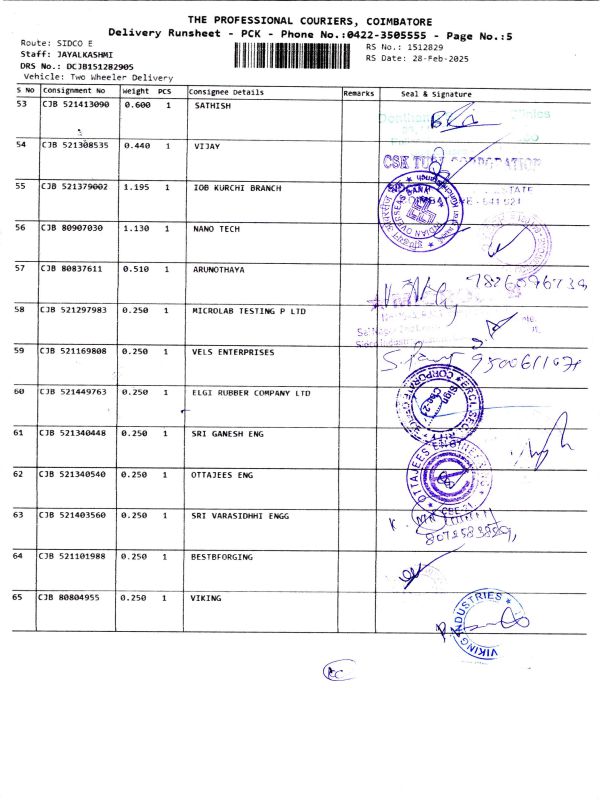 THE PROFESSIONAL COURIERS, COIMBATORE
Delivery Runsheet - PCK - Phone No.:0422-3505555 - Page No.:5
Route: SIDCO E
RS No.: 1512829
Staff: JAYALKASHMI
RS Date: 28-Feb-2025
DRS No.: DCJB151282905
Vehicle: Two Wheeler Delivery
S No Consignment No Weight PCS Consignee Details Remarks Seal & Signature
53 CJB 521413090 0.600 1 SATHISH
54 CJB 521308535 0.440 1 VIJAY
55 CJB 521379002 1.195 1 IOB KURCHI BRANCH
INDIAN OVERSEAS BANK
56 CJB 80907030 1.130 1 NANO TECH
57 CJB 80837611 0.510 1 ARUNOTHAYA
58 CJB 521297983 0.250 1 MICROLAB TESTING P LTD
59 CJB 521169808 0.250 1 VELS ENTERPRISES
60 CJB 521449763 0.250 1 ELGI RUBBER COMPANY LTD
61 CJB 521340448 0.250 1 SRI GANESH ENG
62 CJB 521340540 0.250 1 OTTAJEES ENG
63 CJB 521403560 0.250 1 SRI VARASIDHHI ENGG
64 CJB 521101988 0.250 1 BESTBFORGING
65 CJB 80804955 0.250 1 VIKING
VIKING INDUSTRIES